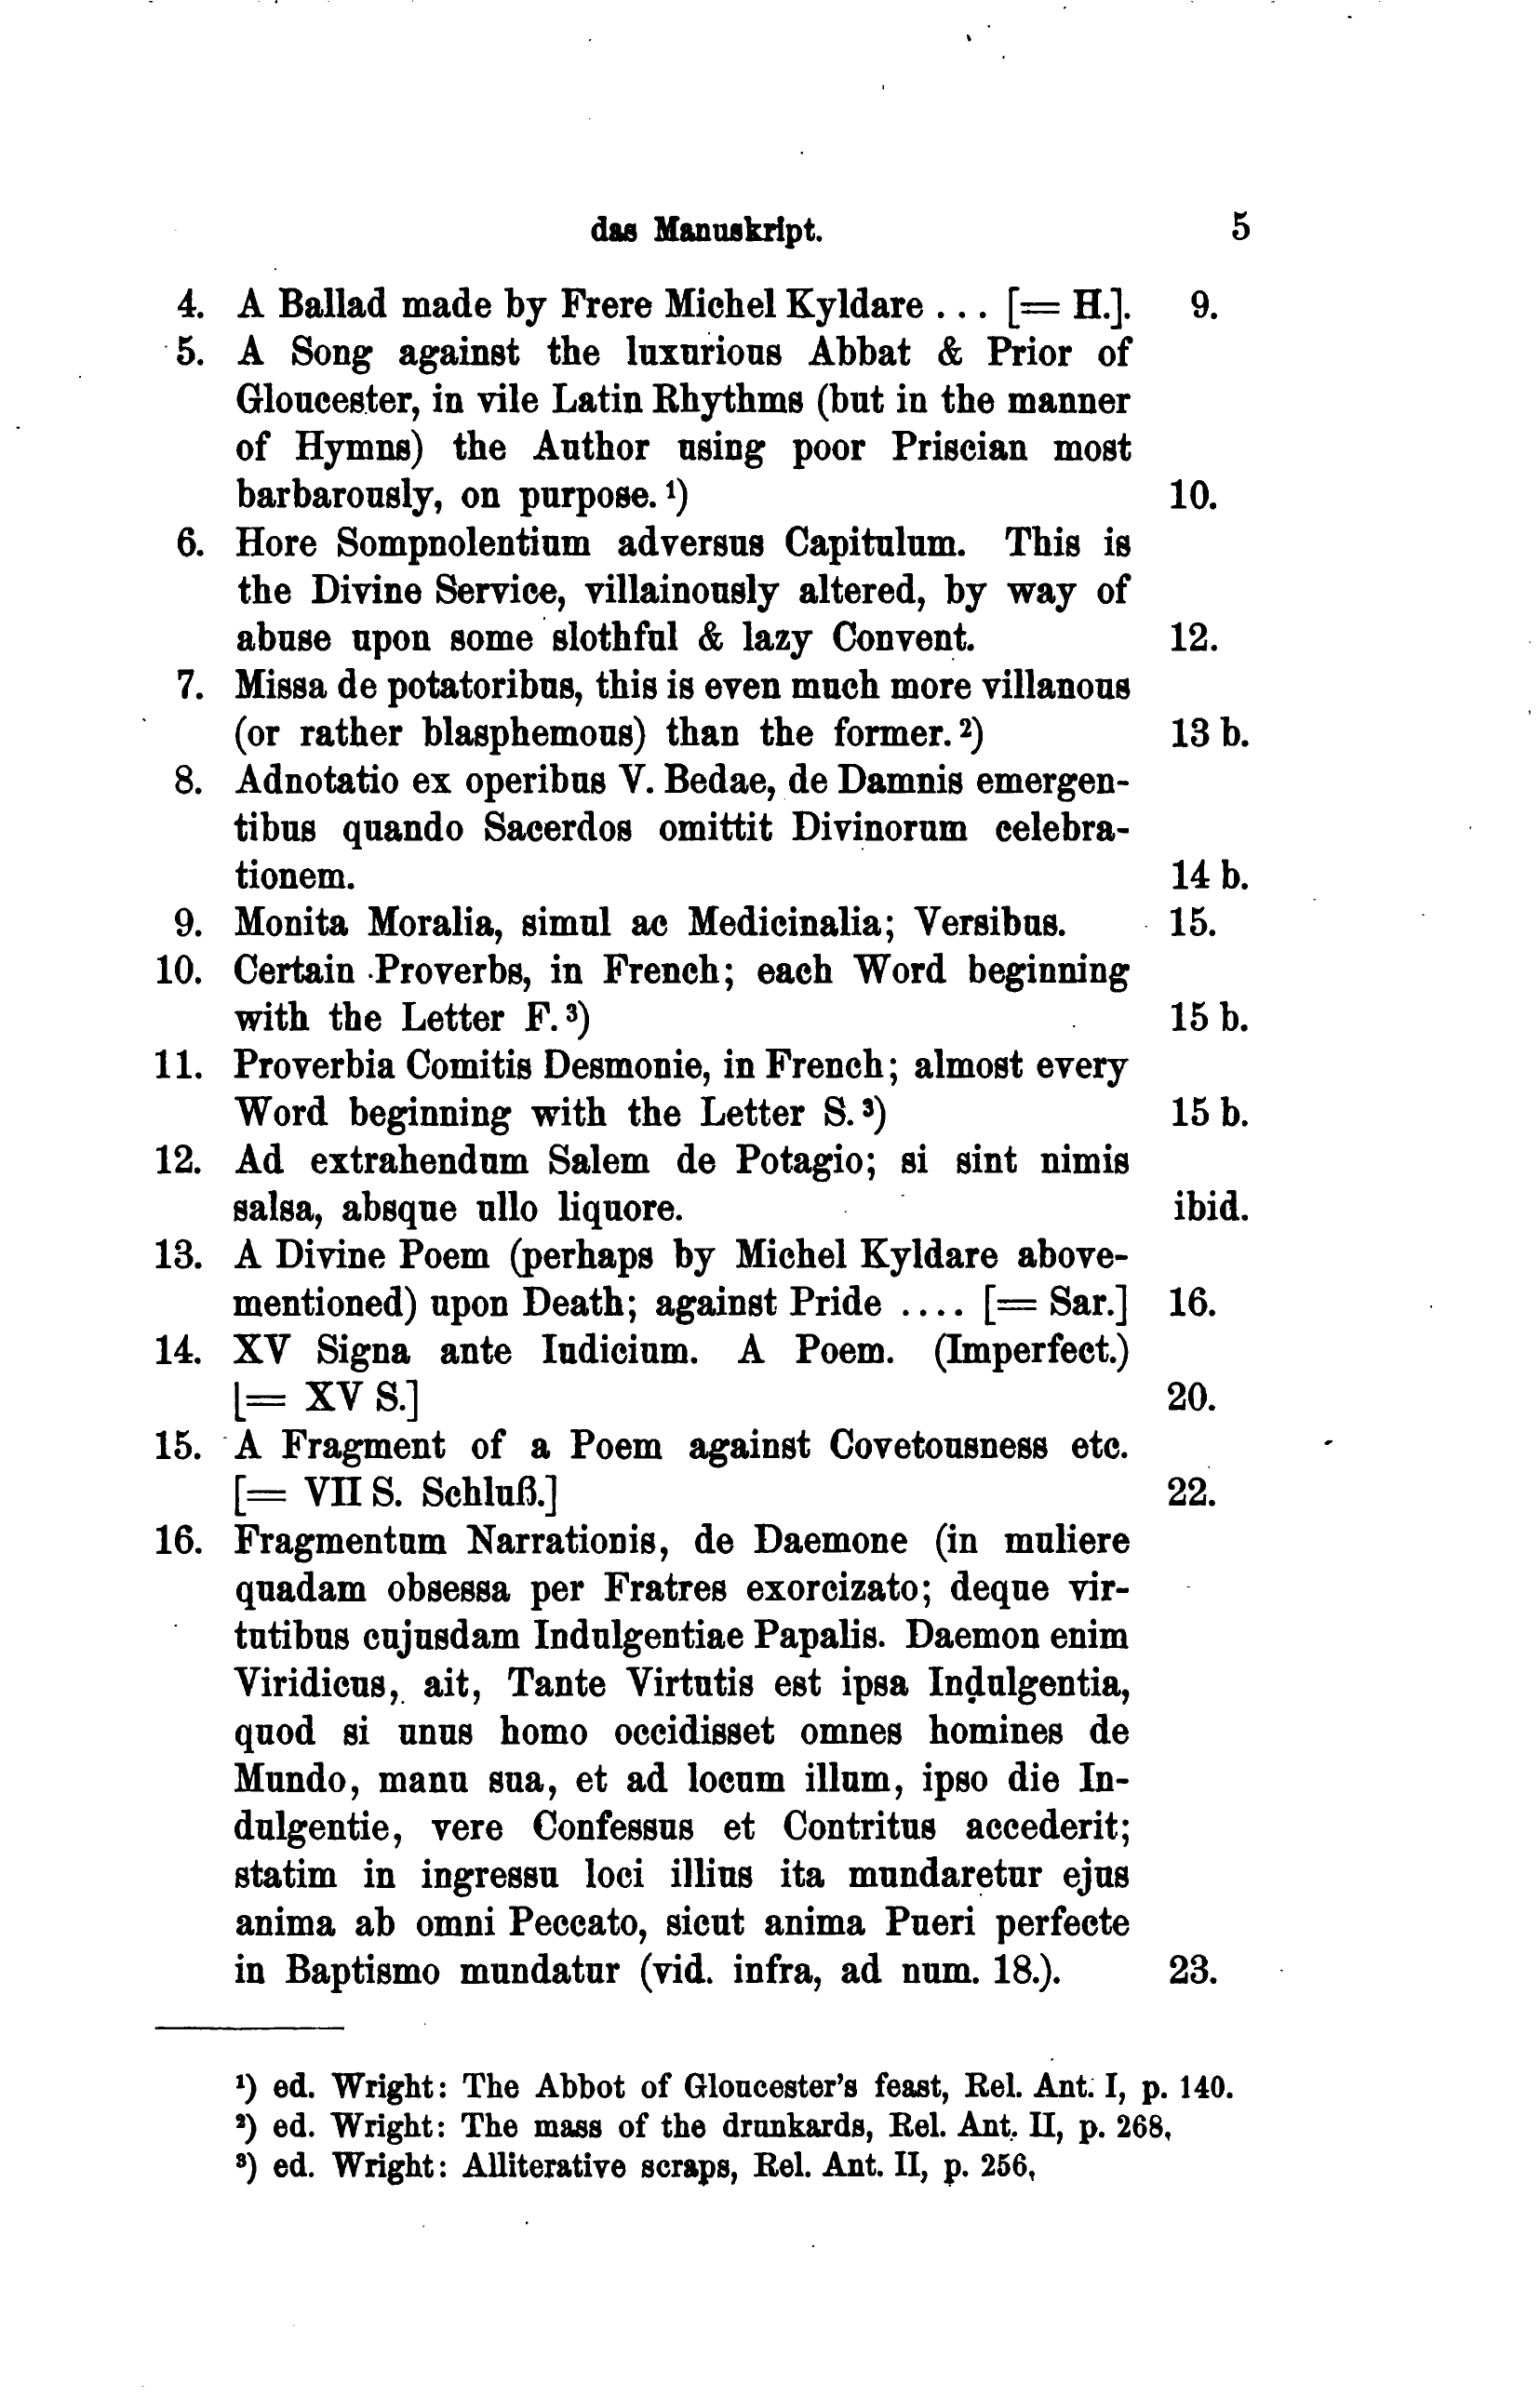 das Manuskript. 5
4. A Ballad made by Frere Michel Kyldare ... [= H.]. 9.
5. A Song against the luxurious Abbat & Prior of
Gloucester, in vile Latin Rhythms (but in the manner
of Hymns) the Author using poor Priscian most
barbarously, on purpose. ¹) 10.
6. Hore Sompnolentium adversus Capitulum. This is
the Divine Service, villainously altered, by way of
abuse upon some slothful & lazy Convent. 12.
7. Missa de potatoribus, this is even much more villanous
(or rather blasphemous) than the former. ²) 13 b.
8. Adnotatio ex operibus V. Bedae, de Damnis emergen-
tibus quando Sacerdos omittit Divinorum celebra-
tionem. 14 b.
9. Monita Moralia, simul ac Medicinalia; Versibus. 15.
10. Certain Proverbs, in French; each Word beginning
with the Letter F. ³) 15 b.
11. Proverbia Comitis Desmonie, in French; almost every
Word beginning with the Letter S. ³) 15 b.
12. Ad extrahendum Salem de Potagio; si sint nimis
salsa, absque ullo liquore. ibid.
13. A Divine Poem (perhaps by Michel Kyldare above-
mentioned) upon Death; against Pride .... [= Sar.] 16.
14. XV Signa ante Iudicium. A Poem. (Imperfect.)
[= XV S.] 20.
15. A Fragment of a Poem against Covetousness etc.
[= VII S. Schluß.] 22.
16. Fragmentum Narrationis, de Daemone (in muliere
quadam obsessa per Fratres exorcizato; deque vir-
tutibus cujusdam Indulgentiae Papalis. Daemon enim
Viridicus, ait, Tante Virtutis est ipsa Indulgentia,
quod si unus homo occidisset omnes homines de
Mundo, manu sua, et ad locum illum, ipso die In-
dulgentie, vere Confessus et Contritus accederit;
statim in ingressu loci illius ita mundaretur ejus
anima ab omni Peccato, sicut anima Pueri perfecte
in Baptismo mundatur (vid. infra, ad num. 18.). 23.
¹) ed. Wright: The Abbot of Gloucester's feast, Rel. Ant. I, p. 140.
²) ed. Wright: The mass of the drunkards, Rel. Ant. II, p. 268,
³) ed. Wright: Alliterative scraps, Rel. Ant. II, p. 256,